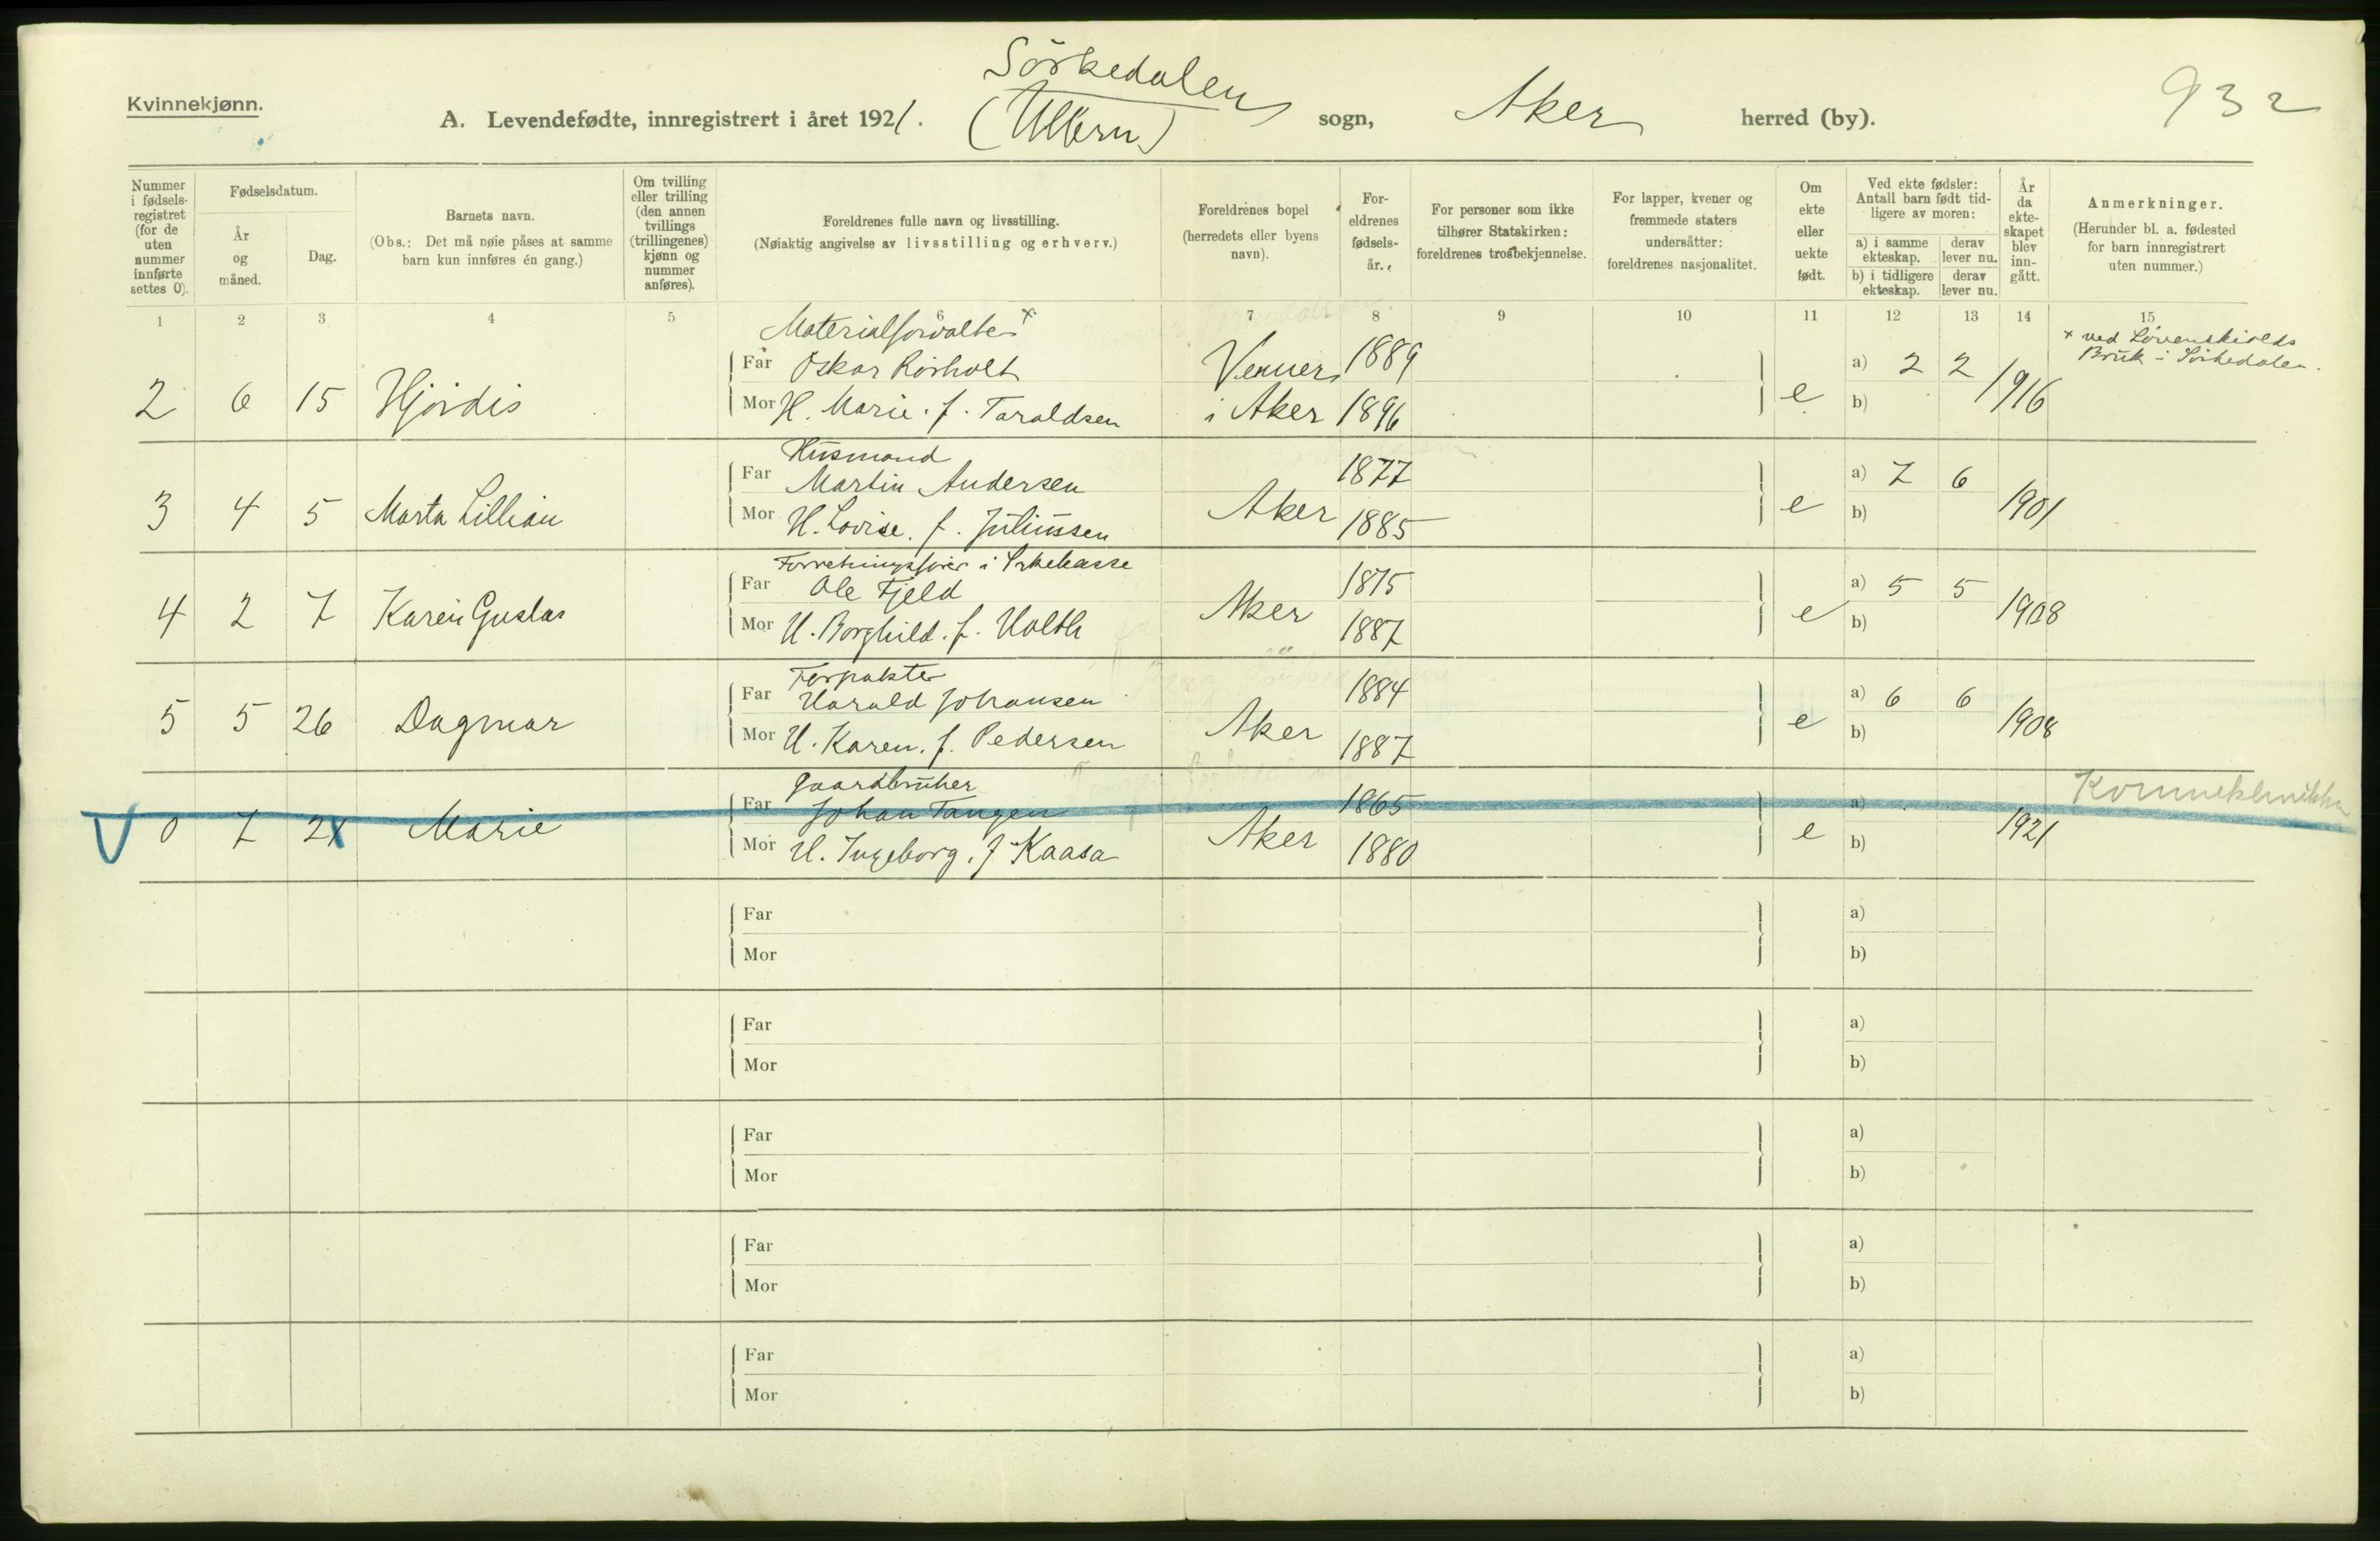 Kvinnekjønn.
Sörkedalen
A. Levendefødte, innregistrert i året 1921. (Ullern) sogn, Aker herred (by).
932
Nummer i fødsels-registret (for de uten nummer innførte settes 0).
Fødselsdatum.
År og måned.
Dag.
Barnets navn.
(Obs.: Det må nøie påses at samme barn kun innføres én gang.)
Om tvilling eller trilling (den annen tvillings (trillingenes) kjønn og nummer anføres).
Foreldrenes fulle navn og livsstilling.
(Nøiaktig angivelse av livsstilling og erhverv.)
Foreldrenes bopel (herredets eller byens navn).
For-eldrenes fødsels-år.
For personer som ikke tilhører Statskirken: foreldrenes trosbekjennelse.
For lapper, kvener og fremmede staters undersåtter: foreldrenes nasjonalitet.
Om ekte eller uekte født.
Ved ekte fødsler: Antall barn født tid-ligere av moren:
a) i samme ekteskap. derav lever nu.
b) i tidligere ekteskap. derav lever nu.
År da ekte-skapet blev inn-gått.
Anmerkninger.
(Herunder bl. a. fødested for barn innregistrert uten nummer.)
1 2 3 4 5 6 7 8 9 10 11 12 13 14 15
Materialforvalter x
x ved Lövenskiolds
Bruk i Sörkedalen.
Far Oskar Rorholt Venner 1889 a) 2 2
2 6 15 Hjördis Mor H. Marie. f. Taraldsen i Aker 1896 e b) 1916
Husmand
Far Martin Andersen 1877 a) 7 6
3 4 5 Marta Lillian Mor H. Lovise. f. Juliussen Aker 1885 e b) 1901
Forretningsfører i
Far Ole Fjeld 1875 a) 5 5
4 2 7 Karen Mor H. Borghild. f. Holth Aker 1887 e b) 1908
Forpakter
Far Harald Johansen 1884 a) 6 6
5 5 26 Dagmar Mor H. Karen. f. Pedersen Aker 1887 e b) 1908
Gaardbruker
Far Johan Tangen 1865 a)
0 7 2 Marie Mor H. Ingeborg. f Kaasa Aker 1880 e b) 1921
Far a)
Mor b)
Far a)
Mor b)
Far a)
Mor b)
Far a)
Mor b)
Far a)
Mor b)